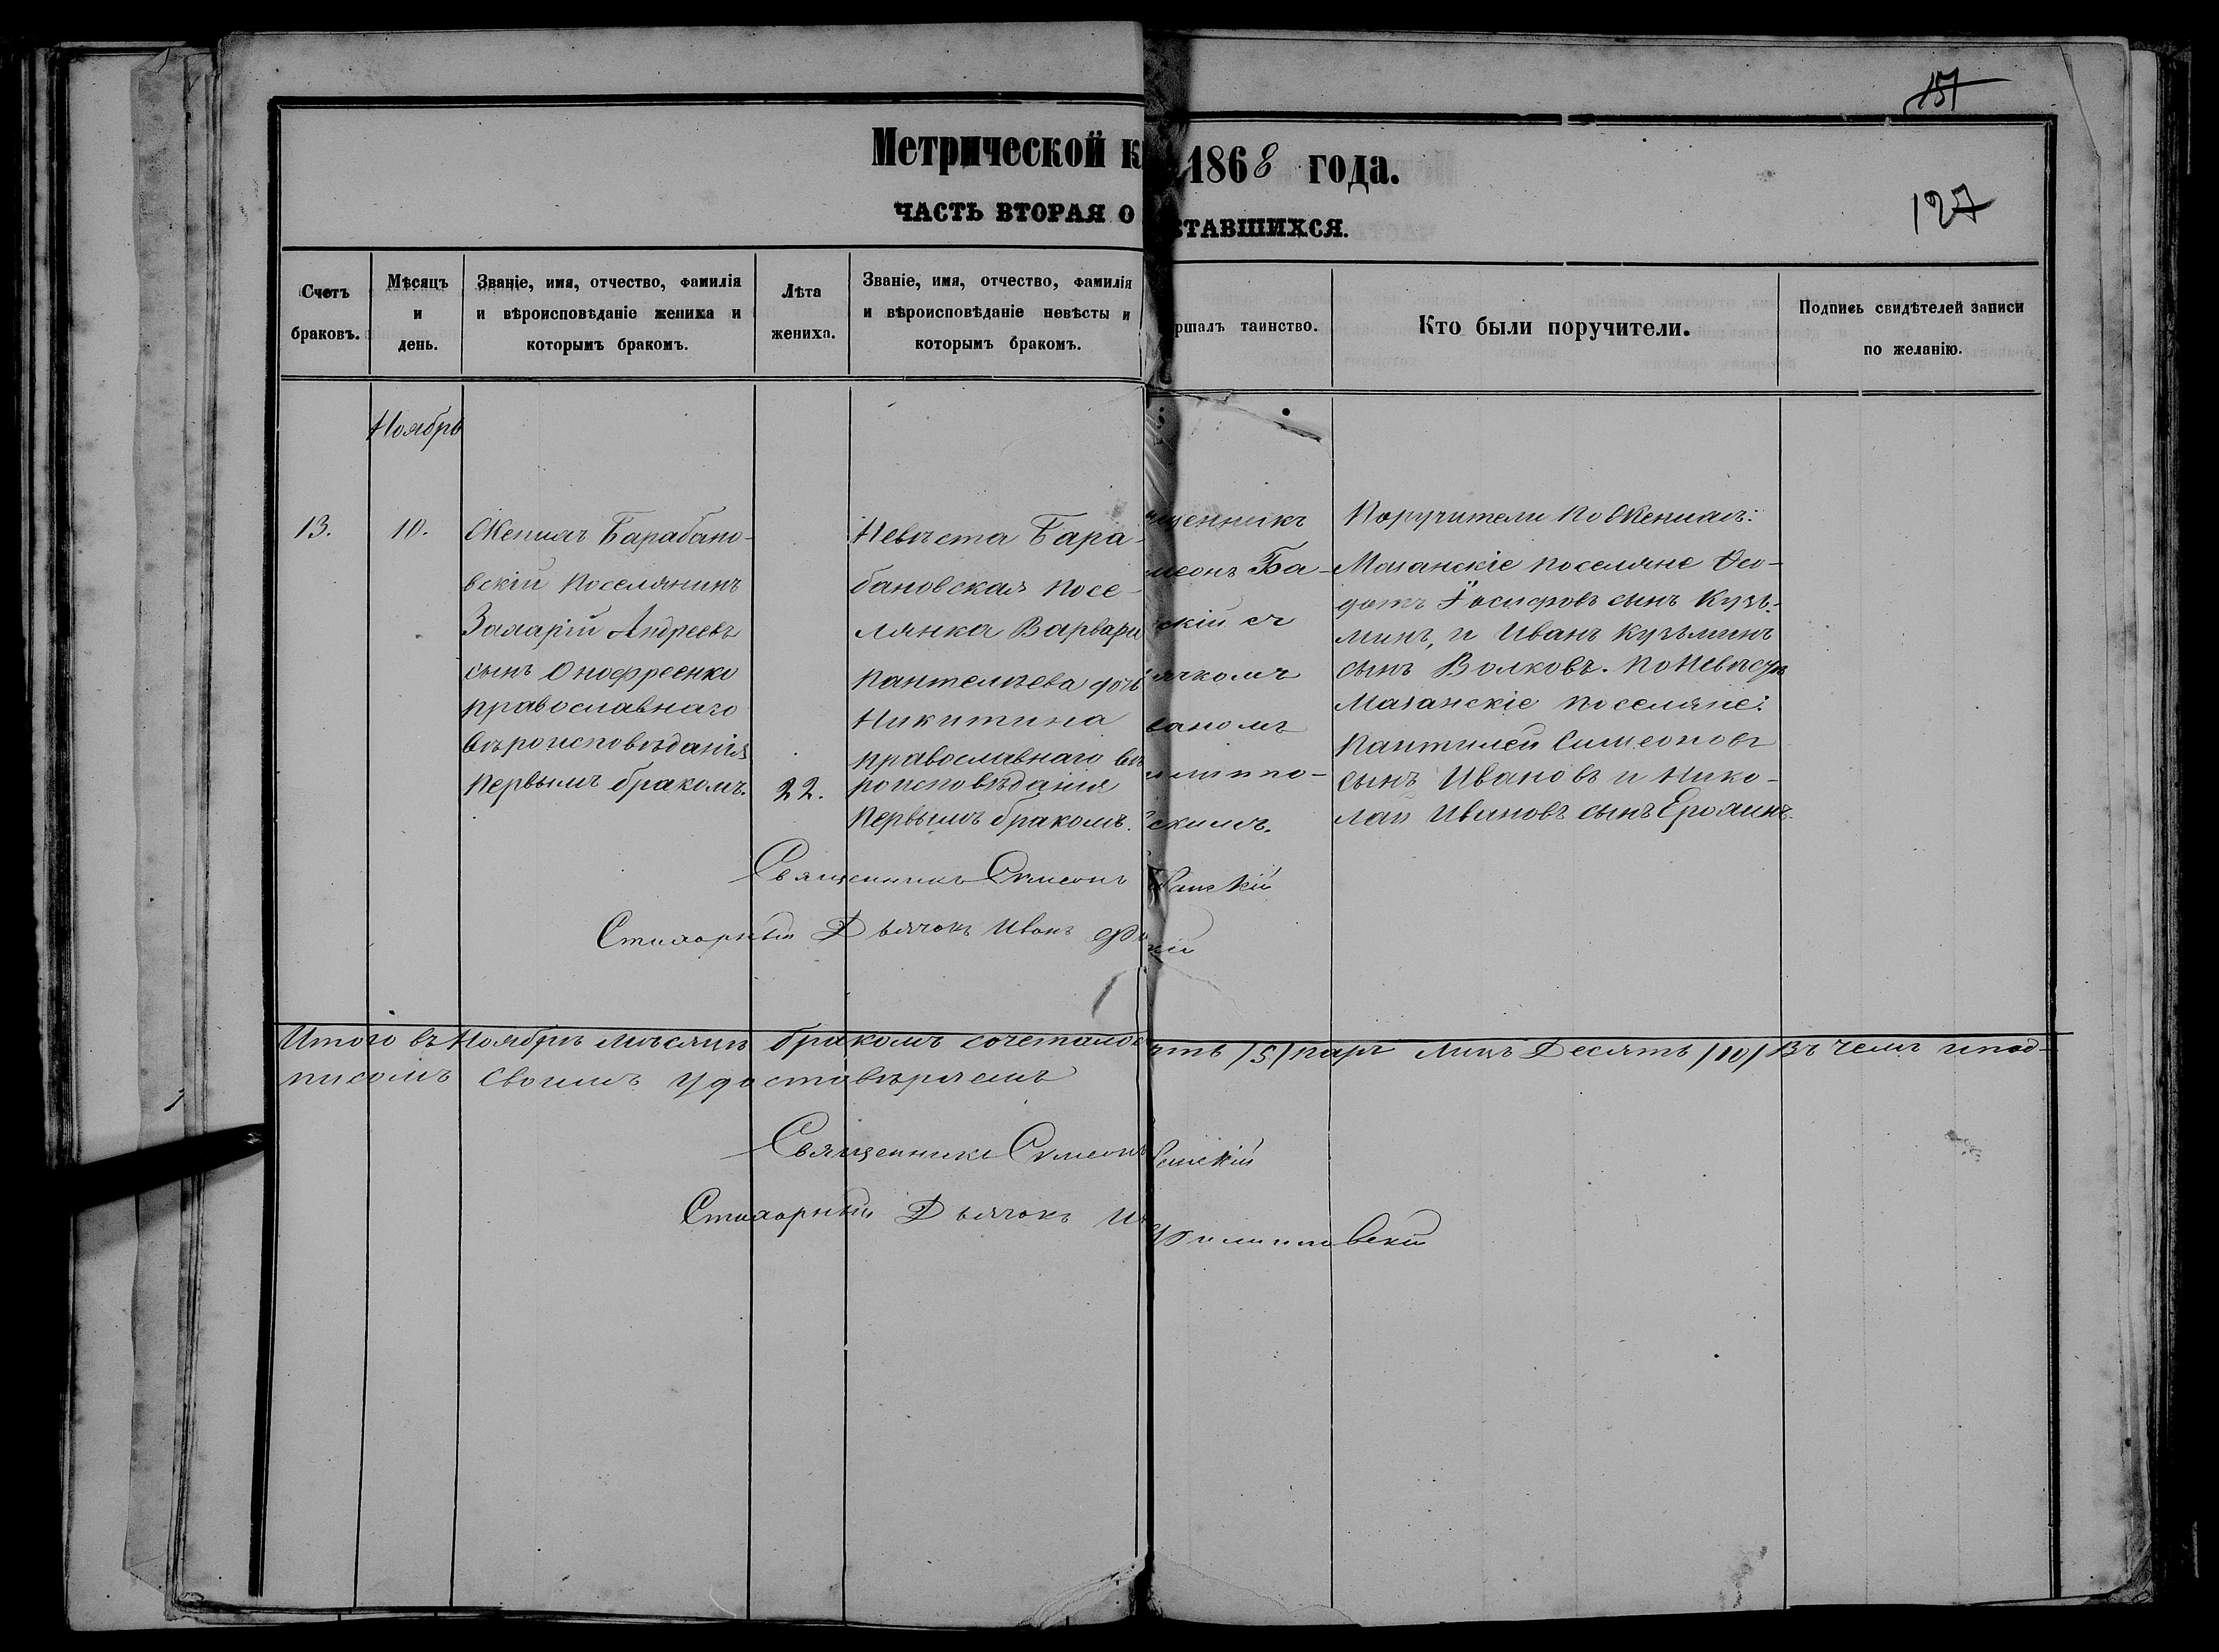 157
Метрической к 1868 года.
127
ЧАСТЬ ВТОРАЯ О СТАВШИХСЯ.
Счетъ браковъ.
Мѣсяцъ и день.
Званіе, имя, отчество, фамилія и вѣроисповѣданіе жениха и которымъ бракомъ.
Лѣта жениха.
Званіе, имя, отчество, фамилія и вѣроисповѣданіе невѣсты и которымъ бракомъ.
ршалъ таинство.
Кто были поручители.
Подпись свидѣтелей записи по желанію.
Ноябрь
13.
10.
Женихъ Барабано-
вскій поселянинъ
Захарій Андреевъ
сынъ Онофреенко
православнаго
вѣроисповѣданія
первымъ бракомъ.
22.
Невѣста Бара-
бановская посе-
лянка Варвара
Пантелѣева дочь
Никитина
православнаго вѣ
роисповѣданія
первымъ бракомъ.
щенникъ
меонъ Ба-
скій съ
ячкомъ
ваномъ
липпо-
скимъ.
Поручители по Женихѣ:
Маганскіе поселяне Ѳео-
дотъ Іосифовъ сынъ Кузь-
минъ, и Иванъ Кузьминъ
сынъ Волковъ. По Невѣстѣ
Маганскіе поселяне:
Пантилей Симеоновъ
сынъ Ивановъ и Нико-
лай Ивановъ сынъ Ерохинъ.
Священникъ Симеонъ скій
Стихарный Дьячокъ Иванъ Фи кій
Итого въ Ноябрѣ мѣсяцѣ бракомъ сочеталос ять /5/ паръ лицъ Десять /10/ Въ чемъ и под-
писомъ своимъ удостовѣряемъ
Священникъ Симеонъ скій
Стихарный Дьячокъ Ив Филипповскій